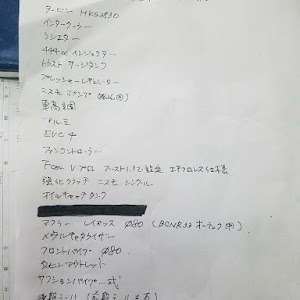 タービン HKS2530
インタークーラー
ラジエター
444cc インジェクター
トラスト サージタンク
プレッシャーレギュレーター
ニスモ ポンプ
車高調
アルミ
EVC 4
ファンコントローラー
Fcon Vプロ ブースト1.2で設定 エアフロレス仕様
強化クラッチ ニスモ シングル
オイルキャッチタンク
マフラー レイマックス Ø80 (BCNR33 オーテック用)
メタルキャタライザー
フロントパイプ Ø80
タービンアウトレット
サクションパイプ一式